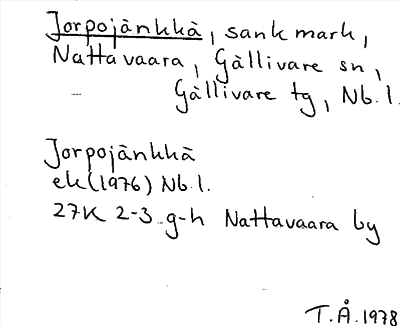 Jorpojänkkä, sank mark,
Nattavaara, Gällivare sn,
Gällivare tg, Nb.l.
Jorpojänkkä
ek(1976) Nb.l.
27K 2-3 g-h Nattavaara by
T.Å.1978